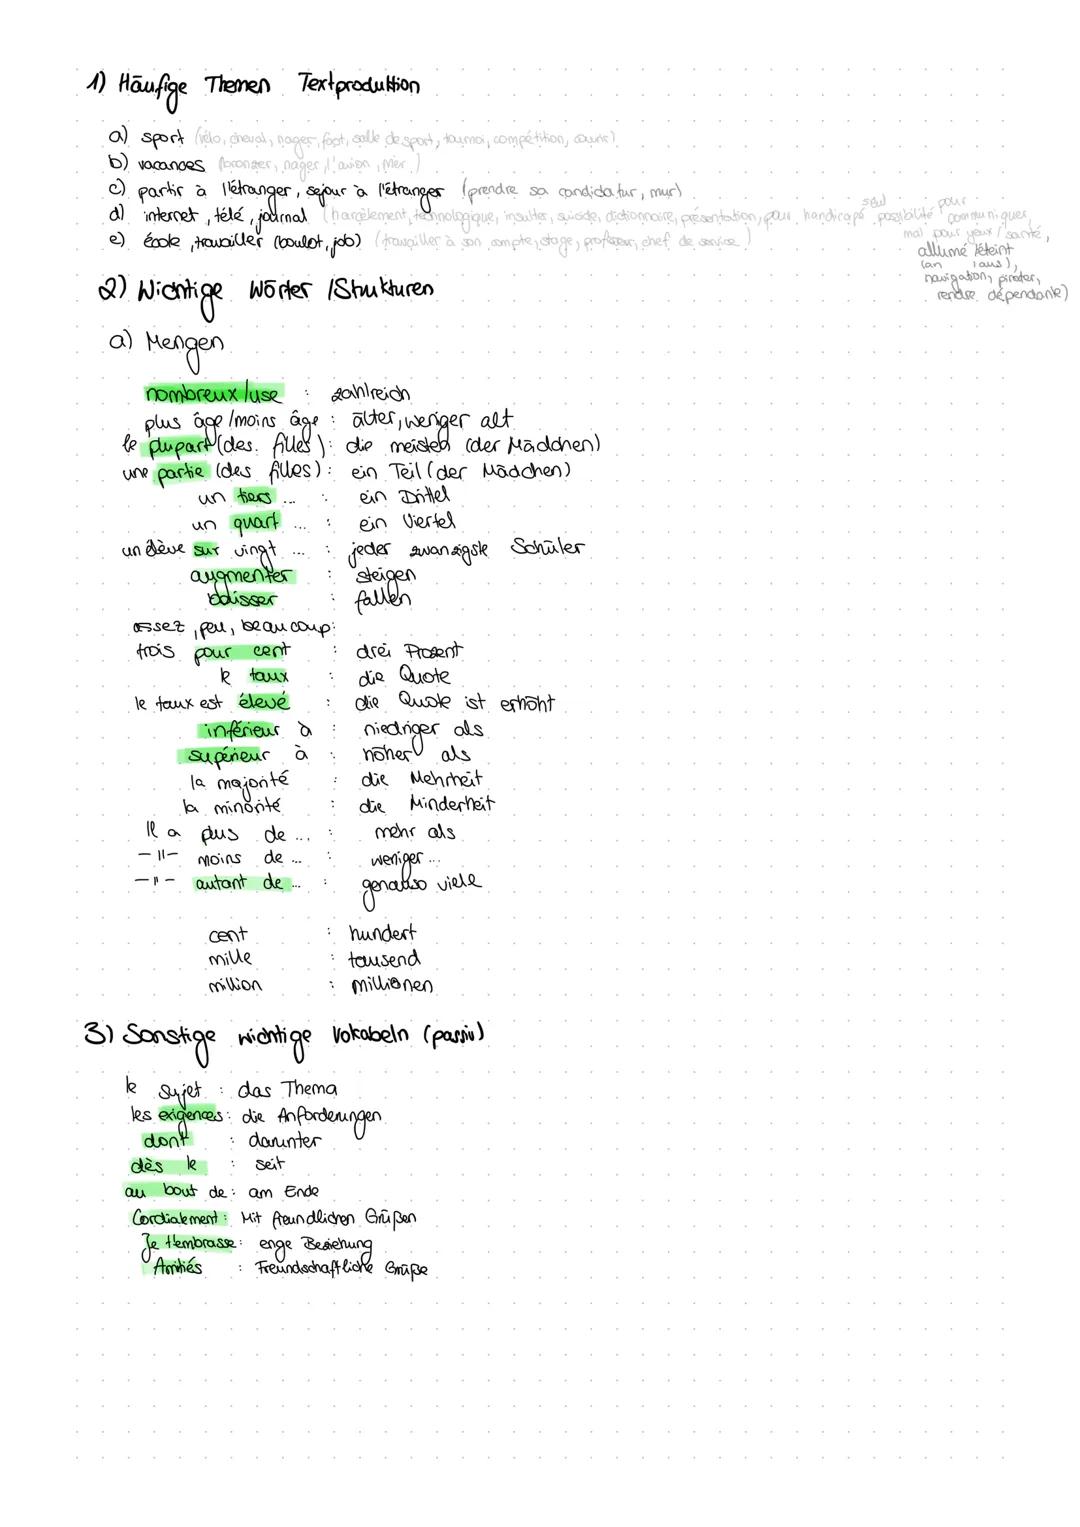 1) Häufige Themen Textproduktion
a) sport (vélo, cheval, nager, foot, salle de sport, tournoi, compétition, courir)
b) vacances (bronzer, nager, l'avion, mer)
c) partir à l'étranger, sejour à l'étranger (prendre sa candidatur, mur)
d) internet, télé, journal (harcèlement, technologique, insulter, suicide, dictionnaire, présentation, pour handicapé possibilité communiquer,
seul pour
mal pour yeux / santé,
e) école, travailler (boulot, job) (travailler à son compte, stage, professeur, chef de service)
allumé / éteint
(an / aus),
navigation, pirater,
rendre dépendante)
2) Wichtige Wörter / Strukturen
a) Mengen
nombreux/use : zahlreich
plus âge/moins âge : älter, weniger alt
le plupart (des filles) : die meisten (der Mädchen)
une partie (des filles) : ein Teil (der Mädchen)
un tiers ... : ein Drittel
un quart ... : ein Viertel
un élève sur vingt ... : jeder zwanzigste Schüler
augmenter : steigen
baisser : fallen
assez, peu, beaucoup:
trois pour cent : drei Prozent
le taux : die Quote
le taux est élevé : die Quote ist erhöht
inférieur à : niedriger als
supérieur à : höher als
la majorité : die Mehrheit
la minorité : die Minderheit
Il a plus de ... : mehr als
-"- moins de ... : weniger ...
-"- autant de ... : genauso viele
cent : hundert
mille : tausend
million : millionen
3) Sonstige wichtige Vokabeln (passiv)
le sujet : das Thema
les exigences : die Anforderungen
dont : darunter
dès le : seit
au bout de : am Ende
Cordialement : Mit freundlichen Grüßen
Je t'embrasse : enge Beziehung
Amitiés : Freundschaftliche Grüße